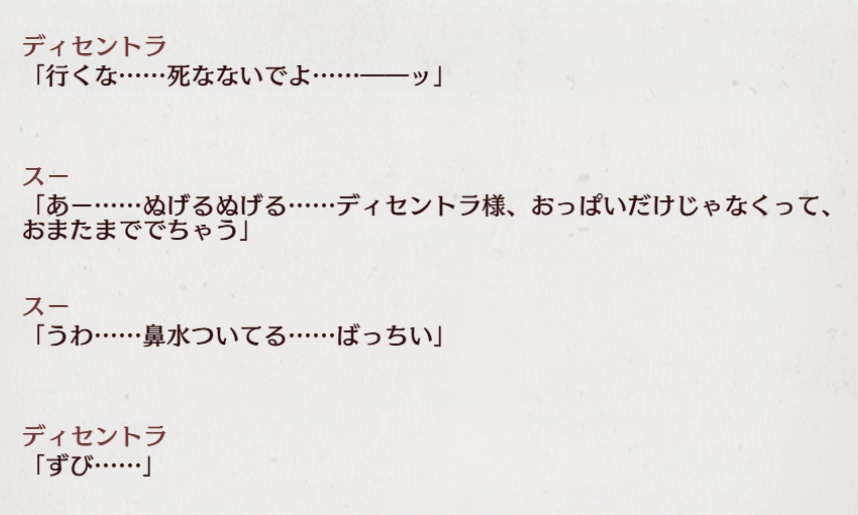 ディセントラ
「行くな……死なないでよ……――ッ」
スー
「あー……ぬげるぬげる……ディセントラ様、おっぱいだけじゃなくって、
おまたまででちゃう」
スー
「うわ……鼻水ついてる……ばっちい」
ディセントラ
「ずび……」